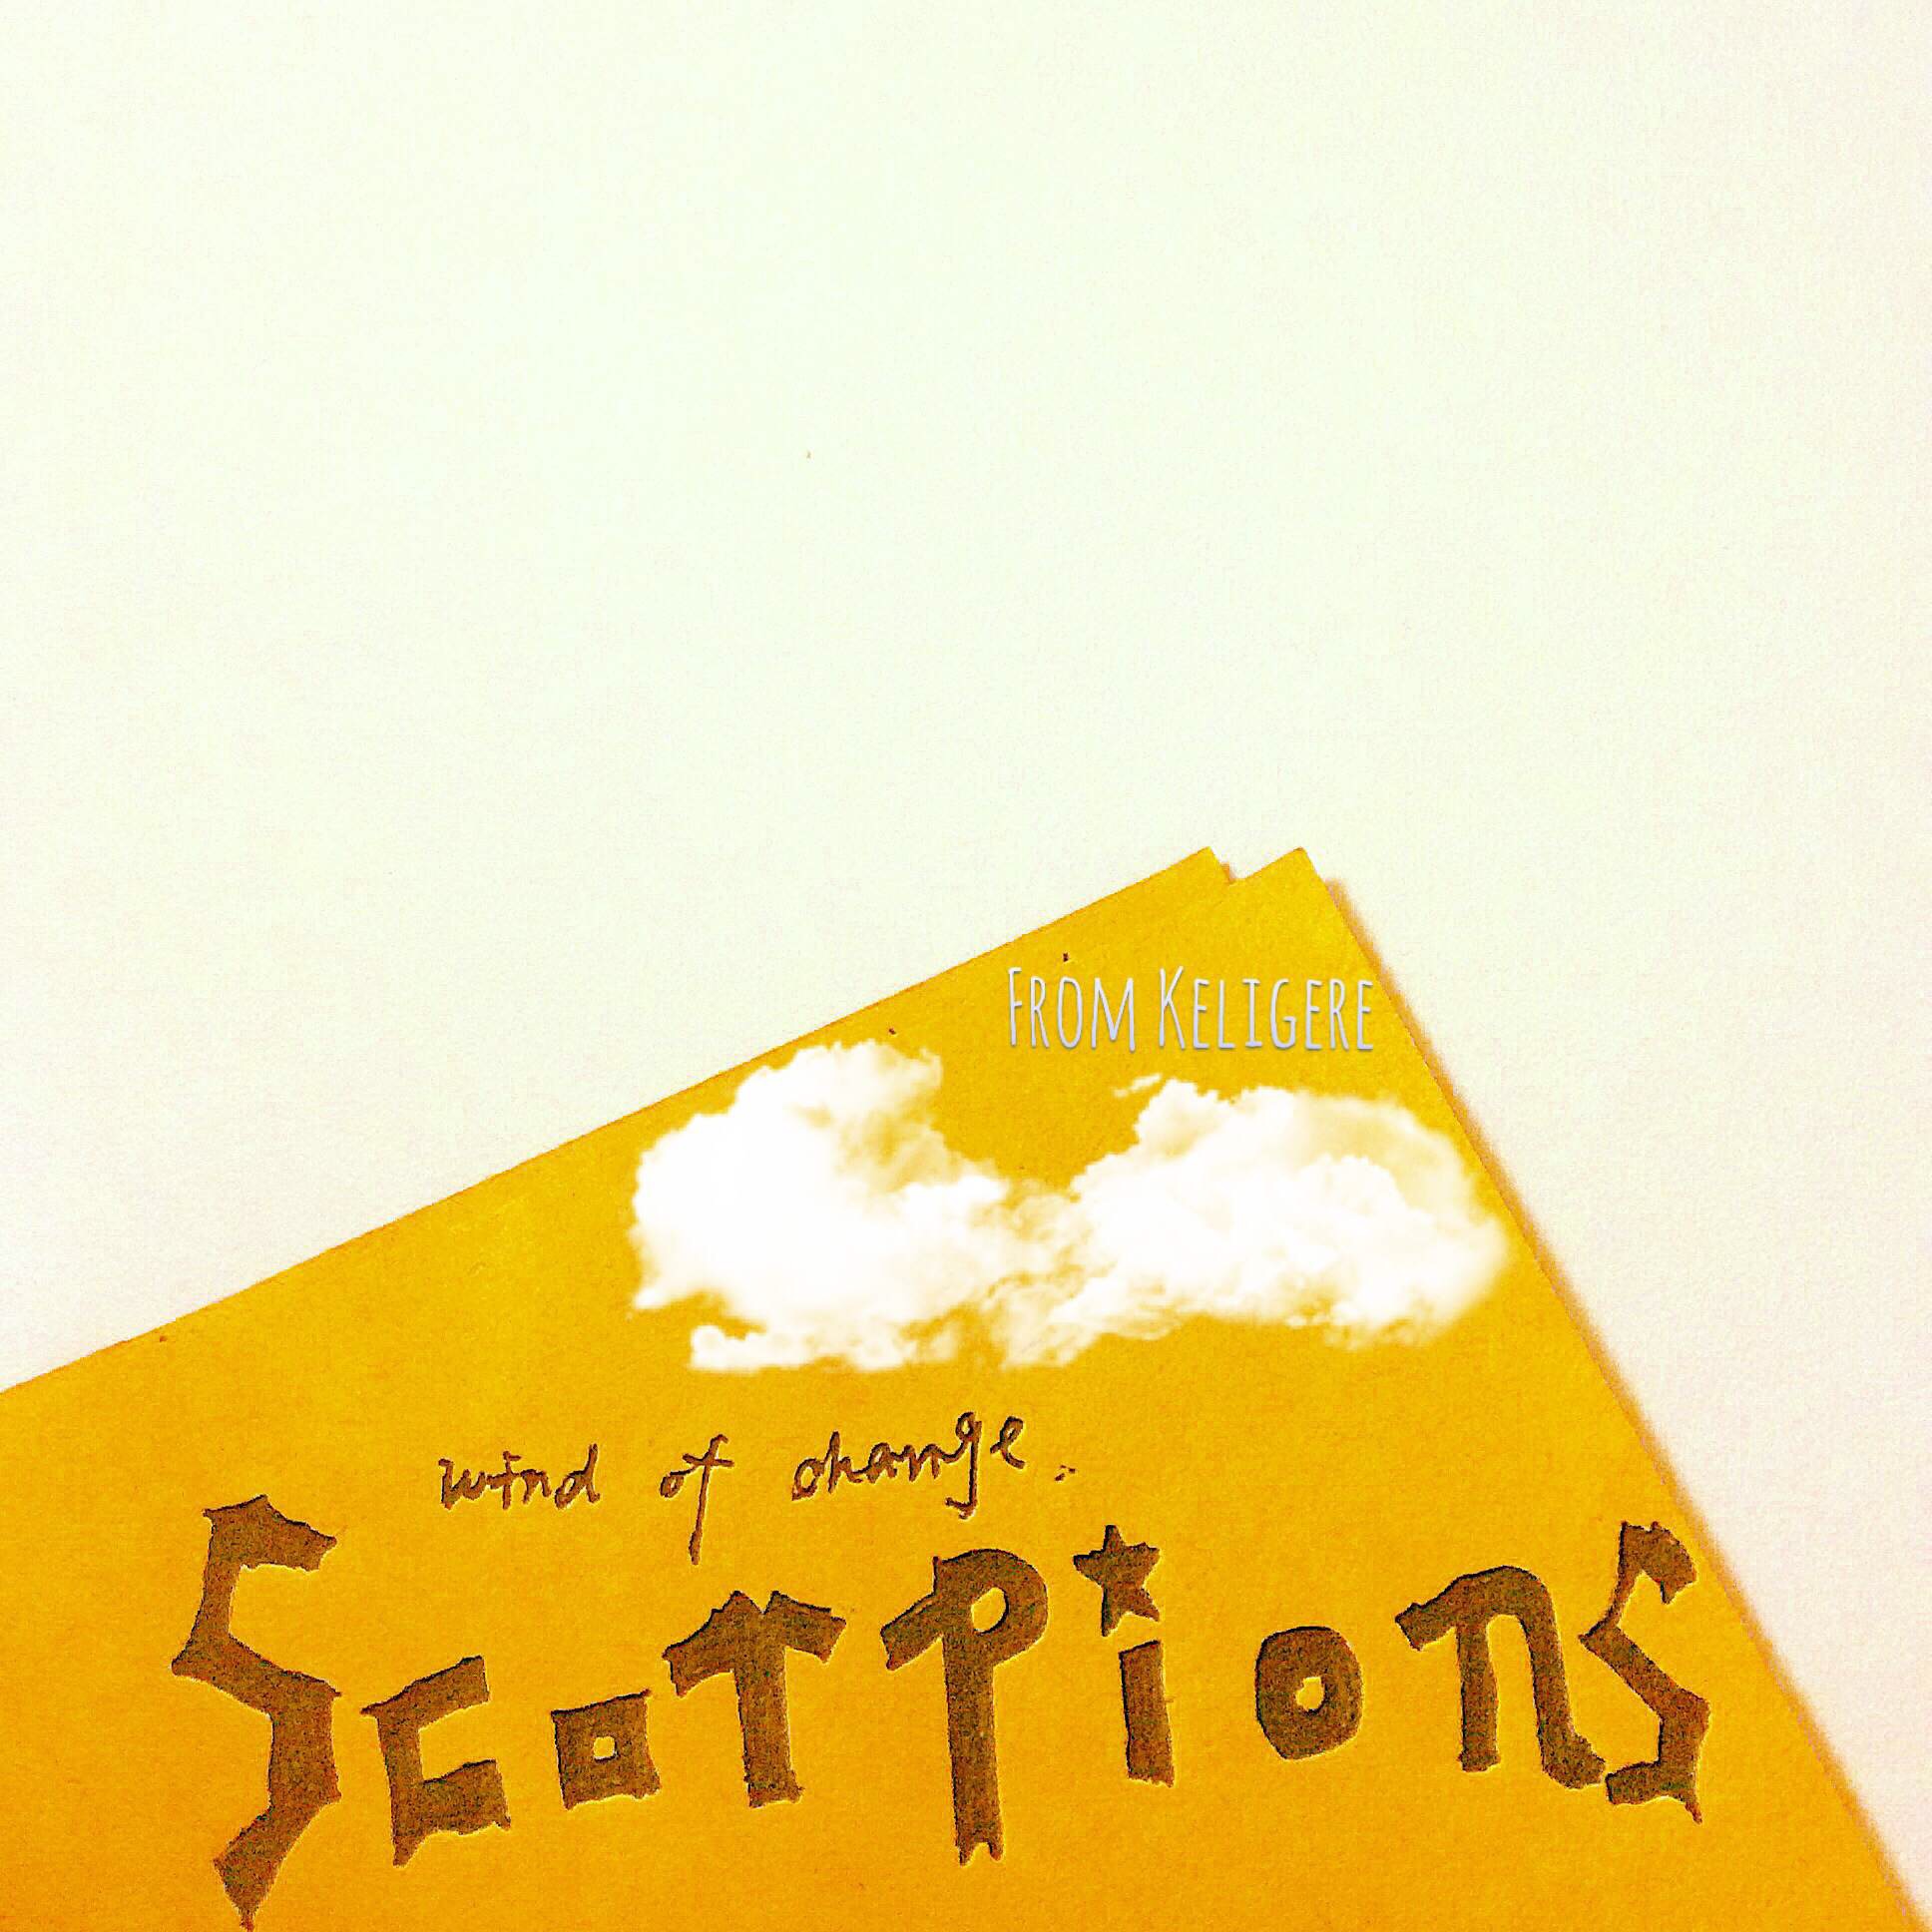 FROM KELIGERE
wind of change.
Scorpions